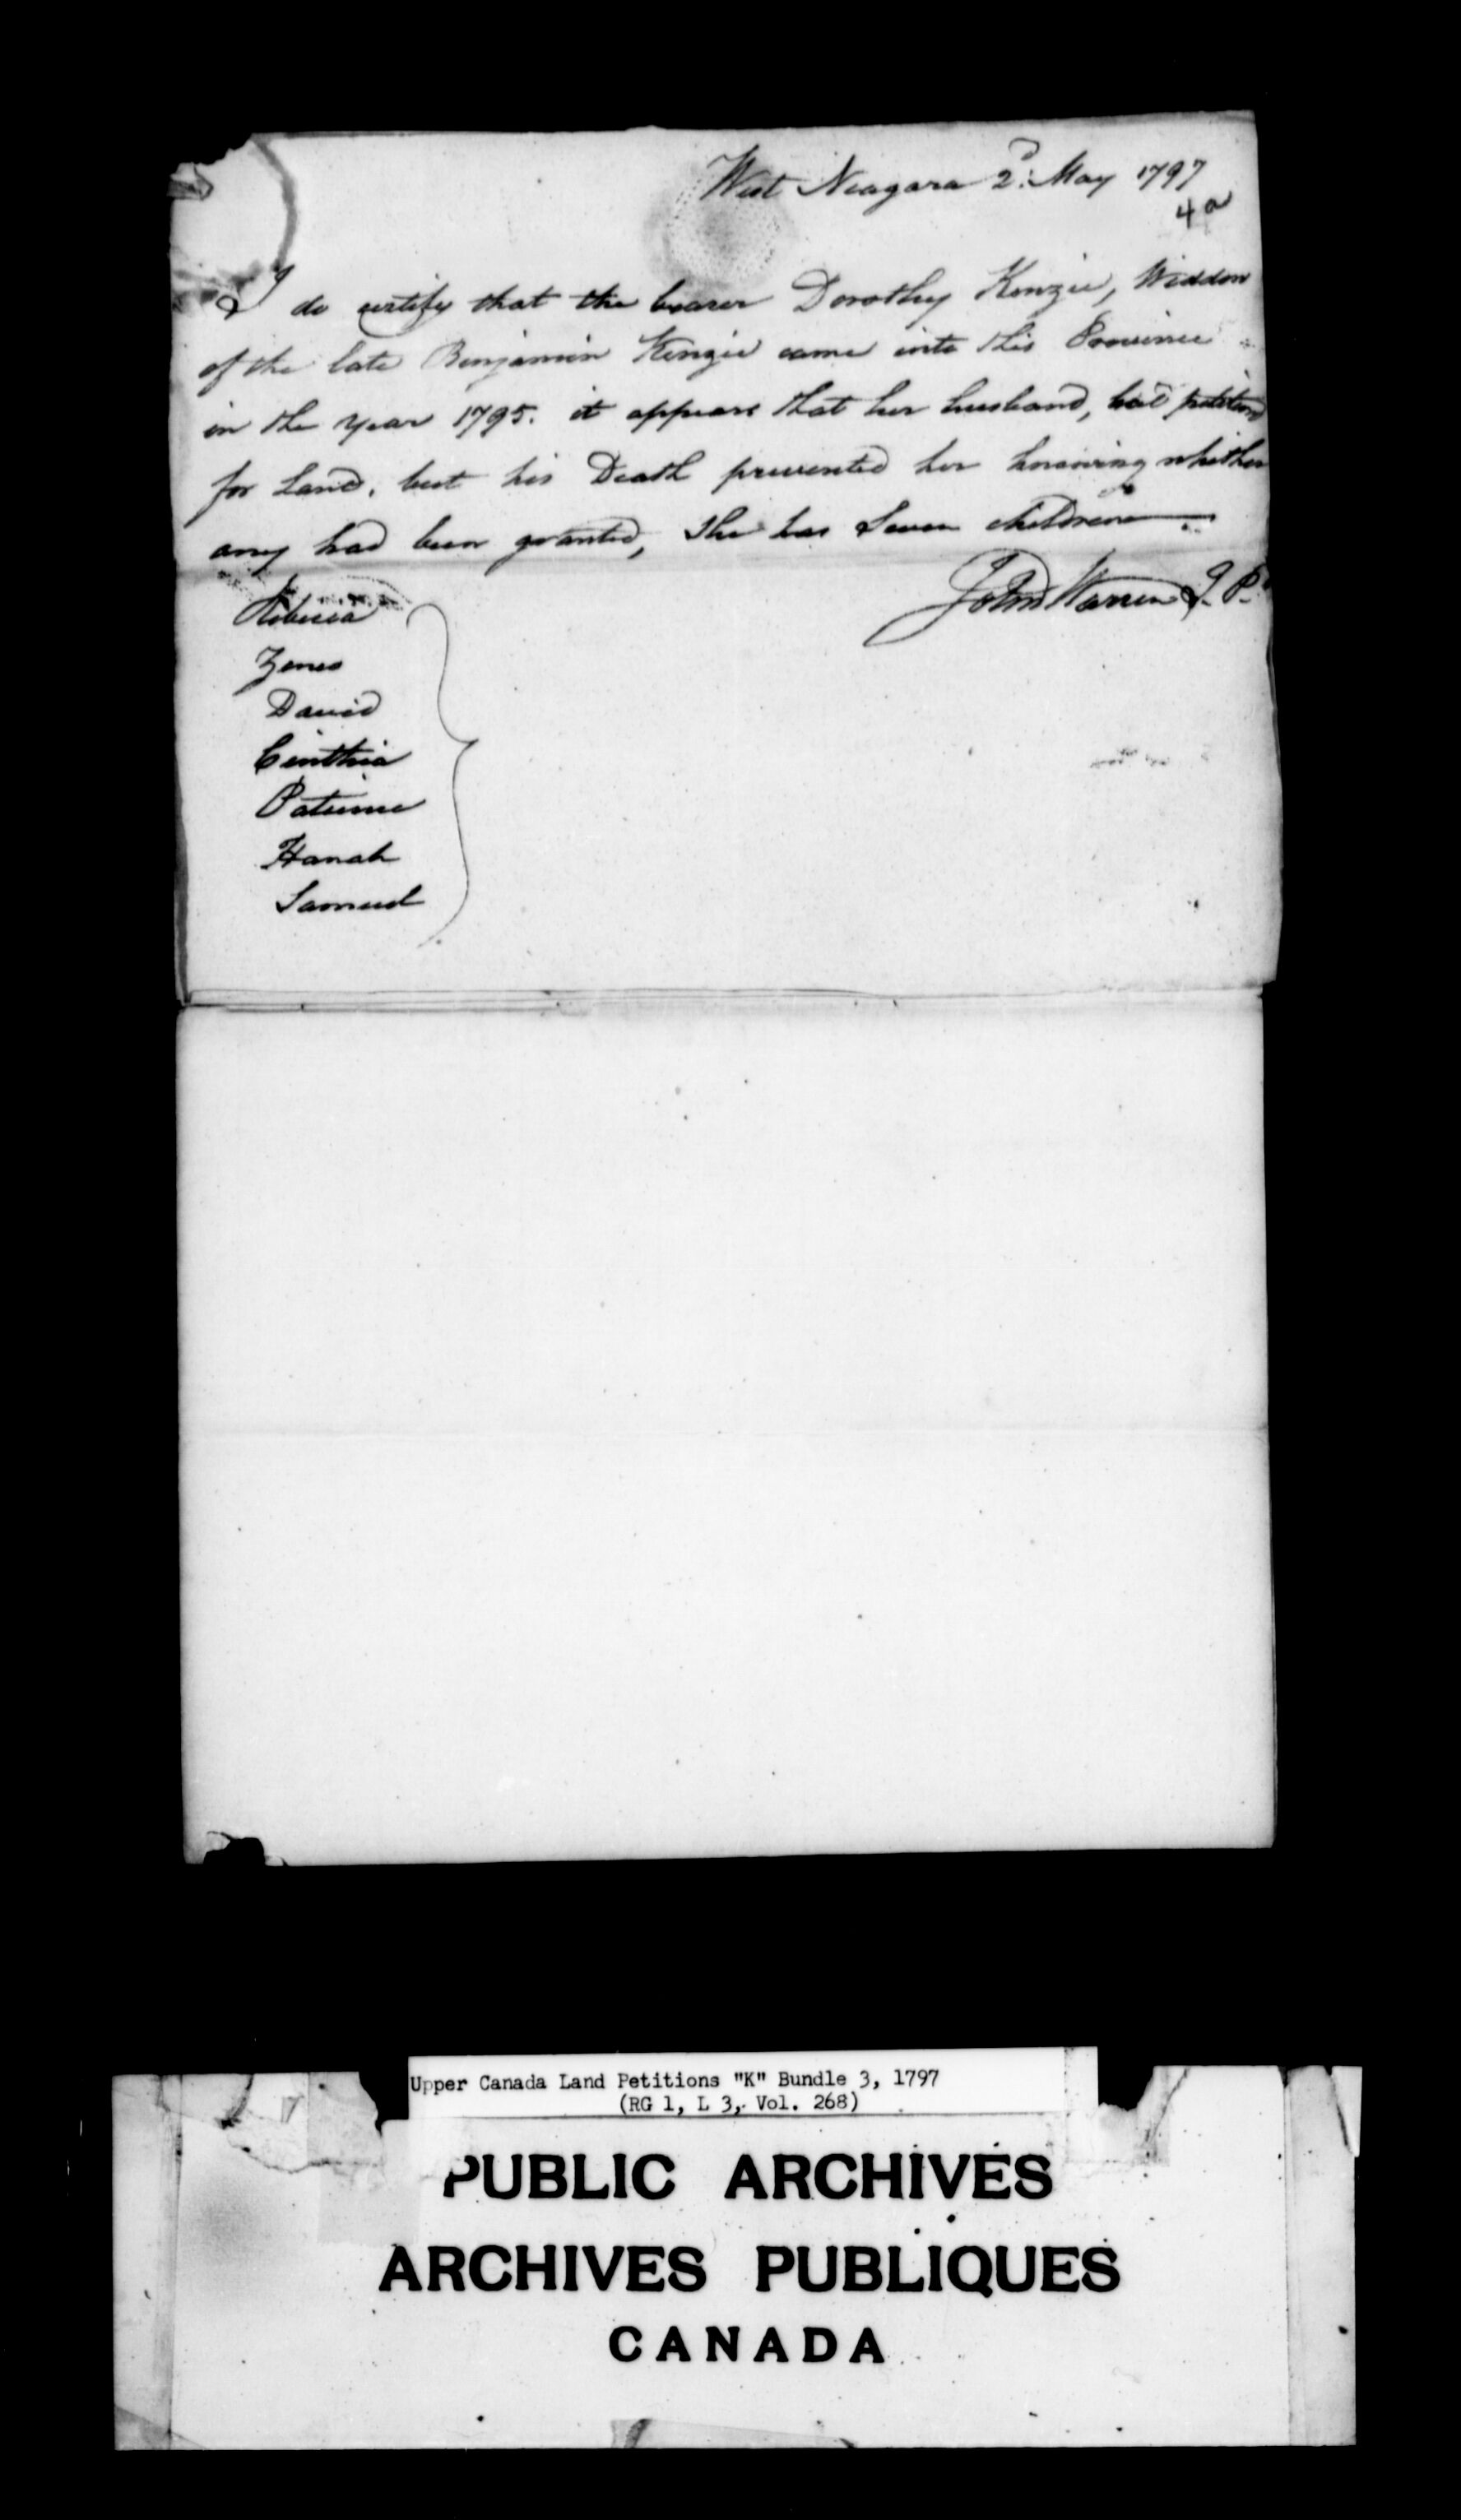 West Niagara 2d: May 1797
4a
I do certify that the bearer Dorothy Kenzie, Widdow
of the late Benjamin Kenzie came into this Province
in the year 1795. it appears that her husband, had petition'd
for Land, but his Death prevented her knowing whether
any had been granted, She has Seven children
John Warren J. P.
Rebecca
Zenes
David
Cinthia
Patience
Hanah
Samuel
Upper Canada Land Petitions "K" Bundle 3, 1797
(RG 1, L 3, Vol. 268)
PUBLIC ARCHIVES
ARCHIVES PUBLIQUES
CANADA